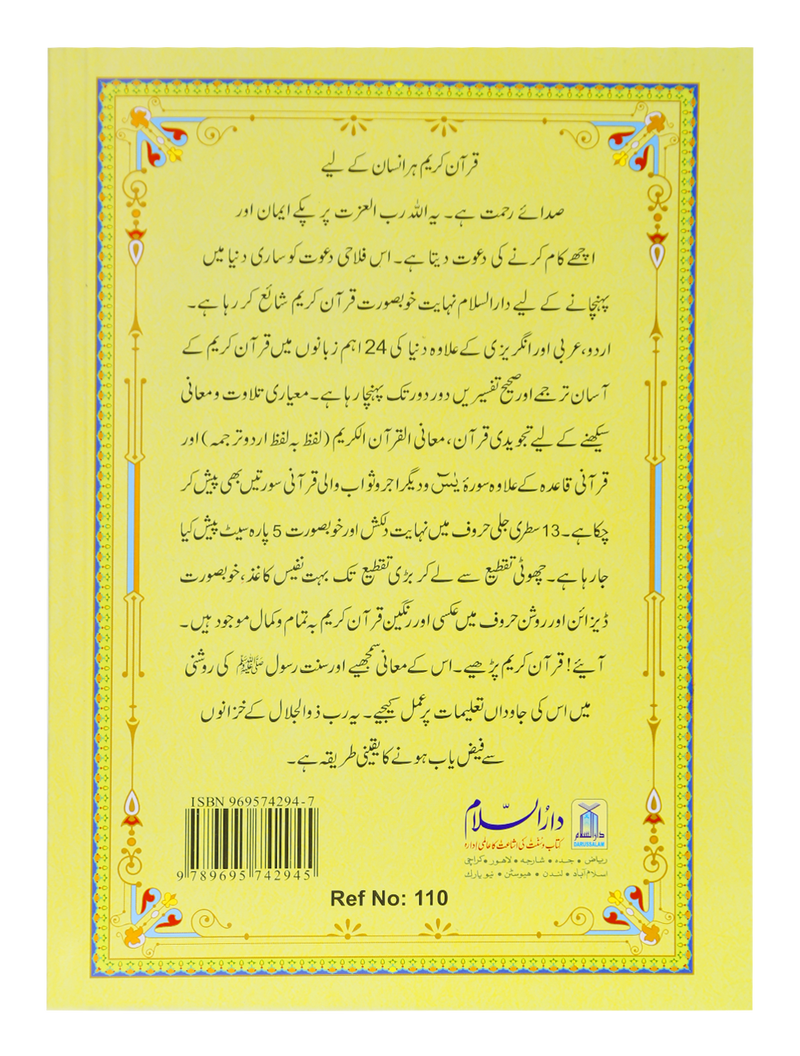 قرآن کریم ہر انسان کے لیے
صدائے رحمت ہے۔ یہ اللہ رب العزت پر پکے ایمان اور
اچھے کام کرنے کی دعوت دیتا ہے۔ اس فلاحی دعوت کو ساری دنیا میں
پہنچانے کے لیے دارالسلام نہایت خوبصورت قرآن کریم شائع کر رہا ہے۔
اردو، عربی اور انگریزی کے علاوہ دنیا کی 24 اہم زبانوں میں قرآن کریم کے
آسان ترجمے اور صحیح تفسیریں دور دور تک پہنچا رہا ہے۔ معیاری تلاوت و معانی
سیکھنے کے لیے تجویدی قرآن، معانی القرآن الکریم (لفظ بہ لفظ اردو ترجمہ) اور
قرآنی قاعدہ کے علاوہ سورۂ یٰسٓ و دیگر اجر و ثواب والی قرآنی سورتیں بھی پیش کر
چکا ہے۔ 13 سطری جلی حروف میں نہایت دلکش اور خوبصورت 5 پارہ سیٹ پیش کیا
جا رہا ہے۔ چھوٹی تقطیع سے لے کر بڑی تقطیع تک بہت نفیس کاغذ، خوبصورت
ڈیزائن اور روشن حروف میں عکسی اور رنگین قرآن کریم بہ تمام و کمال موجود ہیں۔
آیئے! قرآن کریم پڑھیے۔ اس کے معانی سمجھیے اور سنت رسول ﷺ کی روشنی
میں اس کی جاوداں تعلیمات پر عمل کیجیے۔ یہ رب ذوالجلال کے خزانوں
سے فیض یاب ہونے کا یقینی طریقہ ہے۔
ISBN 969574294-7
9 789695 742945
دارالسلام
DARUSSALAM
دارُالسّلام
کتاب و سنت کی اشاعت کا عالمی ادارہ
ریاض • جدہ • شارجہ • لاہور • کراچی
اسلام آباد • لندن • ہیوسٹن • نیو یارک
Ref No: 110